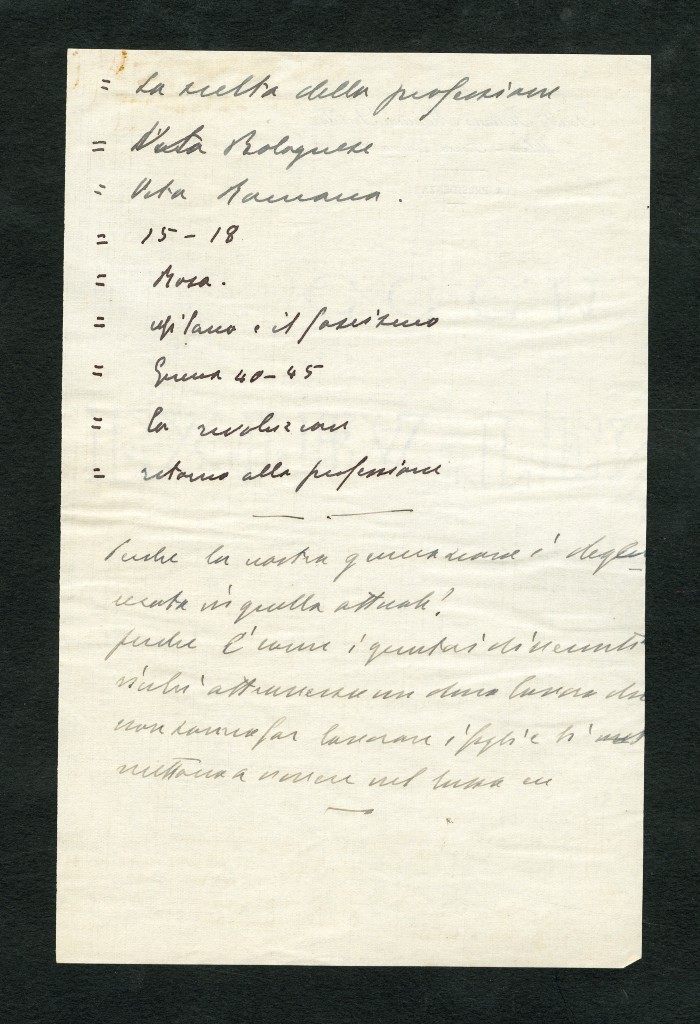 = La scelta della professione
= Vita Bolognese
= Vita Romana.
= 15-18
= Rosa.
= Milano e il fascismo
= Guerra 40-45
= la rivoluzione
= ritorno alla professione
Perche la nostra generazione è
in quella attuale?
perche è come i genitori divenuti
ricchi attraverso un duro lavoro che
non sanno far lavorare i figli e li
mettono a vivere nel lusso